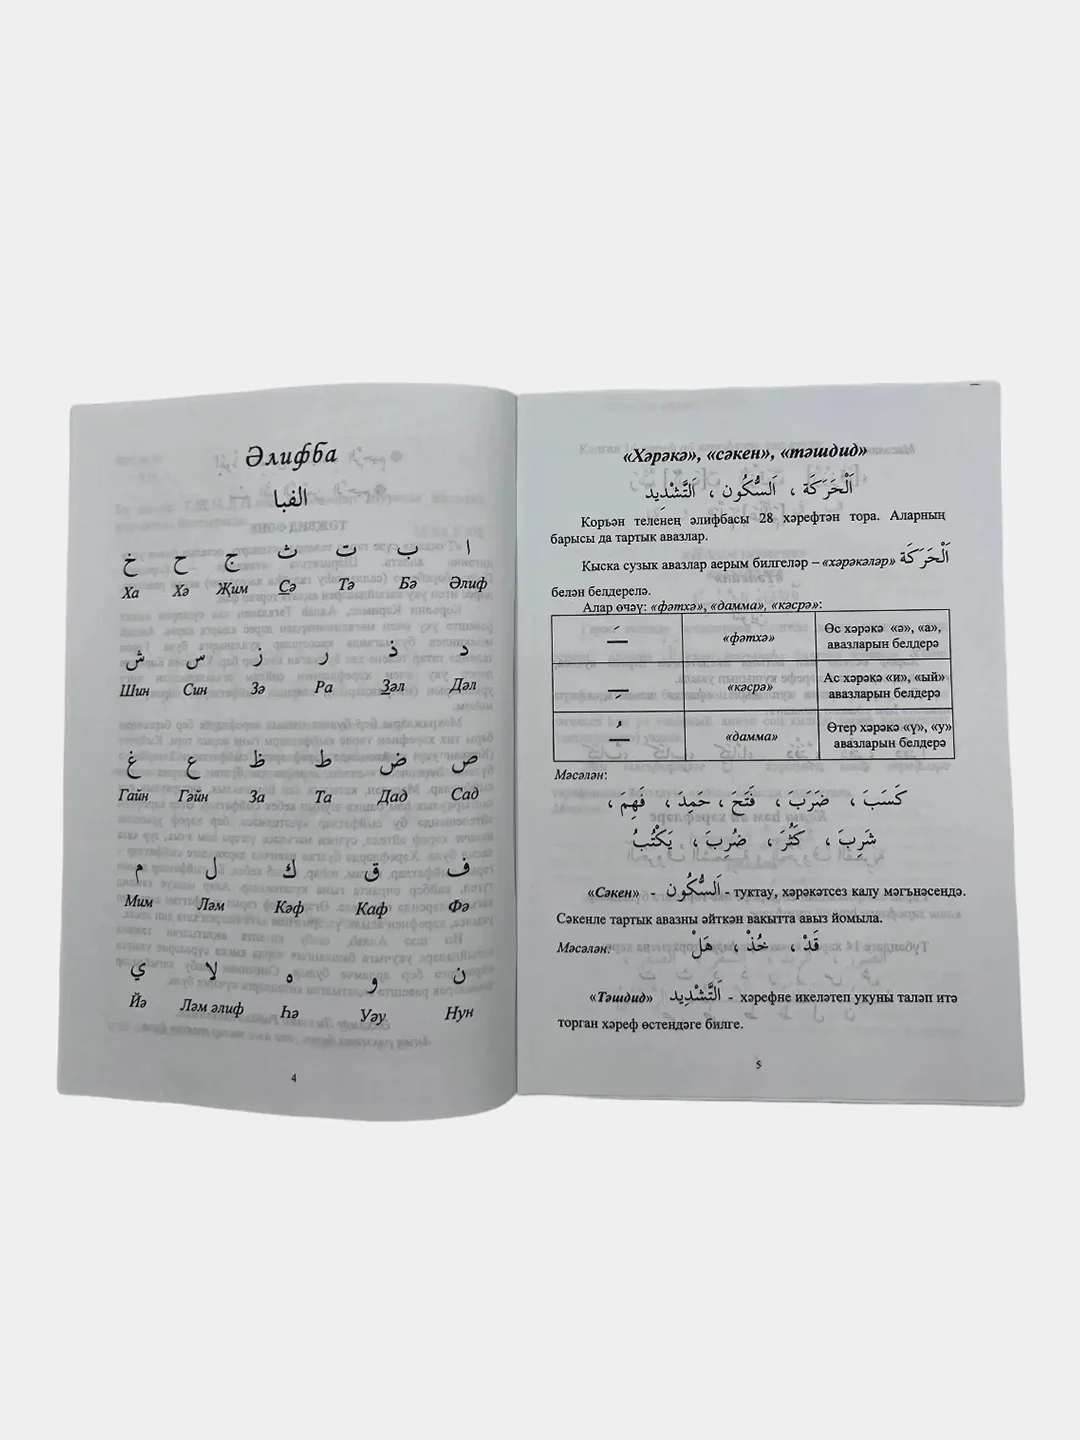 Әлифба
الفبا
ا ب ت ث ج ح خ
Әлиф Бә Тә Сә Җим Хә Ха
د ذ ر ز س ش
Дәл Зәл Ра Зә Син Шин
ص ض ط ظ ع غ
Сад Дад Та За Гәйн Гайн
ف ق ك ل م
Фә Каф Кәф Ләм Мим
ن و ه لا ي
Нун Уәу Һә Ләм әлиф Йә
4
«Хәрәкә», «сәкен», «тәшдид»
اَلْحَرَكَة ، اَلسُّكُون ، اَلتَّشْدِيد
Коръән теленең әлифбасы 28 хәрефтән тора. Аларның
барысы да тартык авазлар.
Кыска сузык авазлар аерым билгеләр – «хәрәкәләр» اَلْحَرَكَة
белән белдерелә.
Алар өчәү: «фәтхә», «дамма», «кәсрә»:
ـَـ «фәтхә» Өс хәрәкә «ә», «а»,
авазларын белдерә
ـِـ «кәсрә» Ас хәрәкә «и», «ый»
авазларын белдерә
ـُـ «дамма» Өтер хәрәкә «ү», «у»
авазларын белдерә
Мәсәлән:
كَسَبَ ، ضَرَبَ ، فَتَحَ ، حَمِدَ ، فَهِمَ ،
شَرِبَ ، كَثُرَ ، ضُرِبَ ، يَكْتُبُ
«Сәкен» - اَلسُّكُون - туктау, хәрәкәтсез калу мәгънәсендә.
Сәкенле тартык авазны әйткән вакытта авыз йомыла.
Мәсәлән: قَدْ ، خُذْ ، هَلْ
«Тәшдид» اَلتَّشْدِيد - хәрефне икеләтеп укуны таләп итә
торган хәреф өстендәге билге.
5